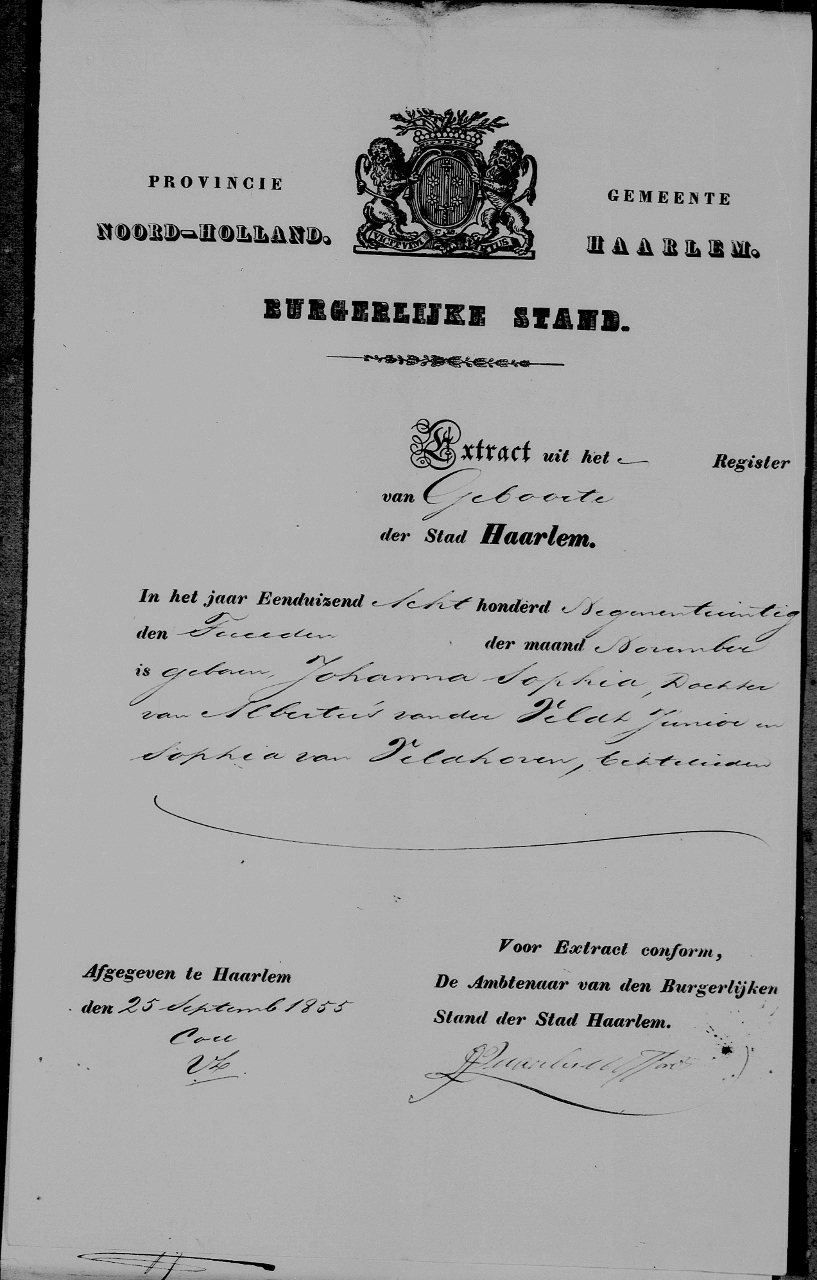 PROVINCIE
NOORD-HOLLAND.
GEMEENTE
HAARLEM.
BURGERLIJKE STAND.
Extract uit het Register
van Geboorte
der Stad Haarlem.
In het jaar Eenduizend Acht honderd Negenentwintig
den Tweeden der maand November
is geboren, Johanna Sophia, Dochter
van Albertus van der Veldt Junior en
Sophia van Veldhoven, Echtelieden
Voor Extract conform,
Afgegeven te Haarlem
De Ambtenaar van den Burgerlijken
den 25 Septemb 1855
Stand der Stad Haarlem.
Coll